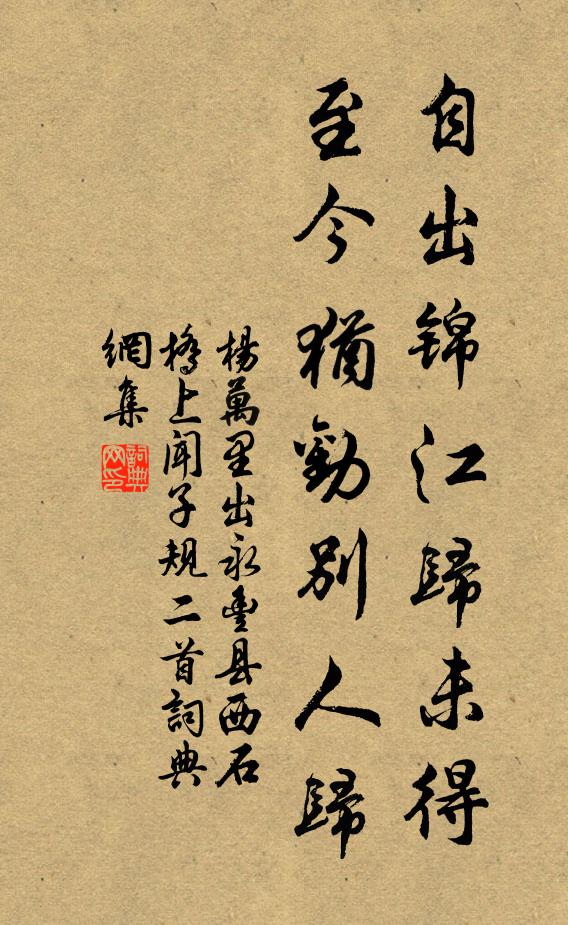 自出锦江歸未得
至今猶勸別人歸
楊萬里出永豐县西石
橋上闻子規二首詞典
網集
詞典
网印